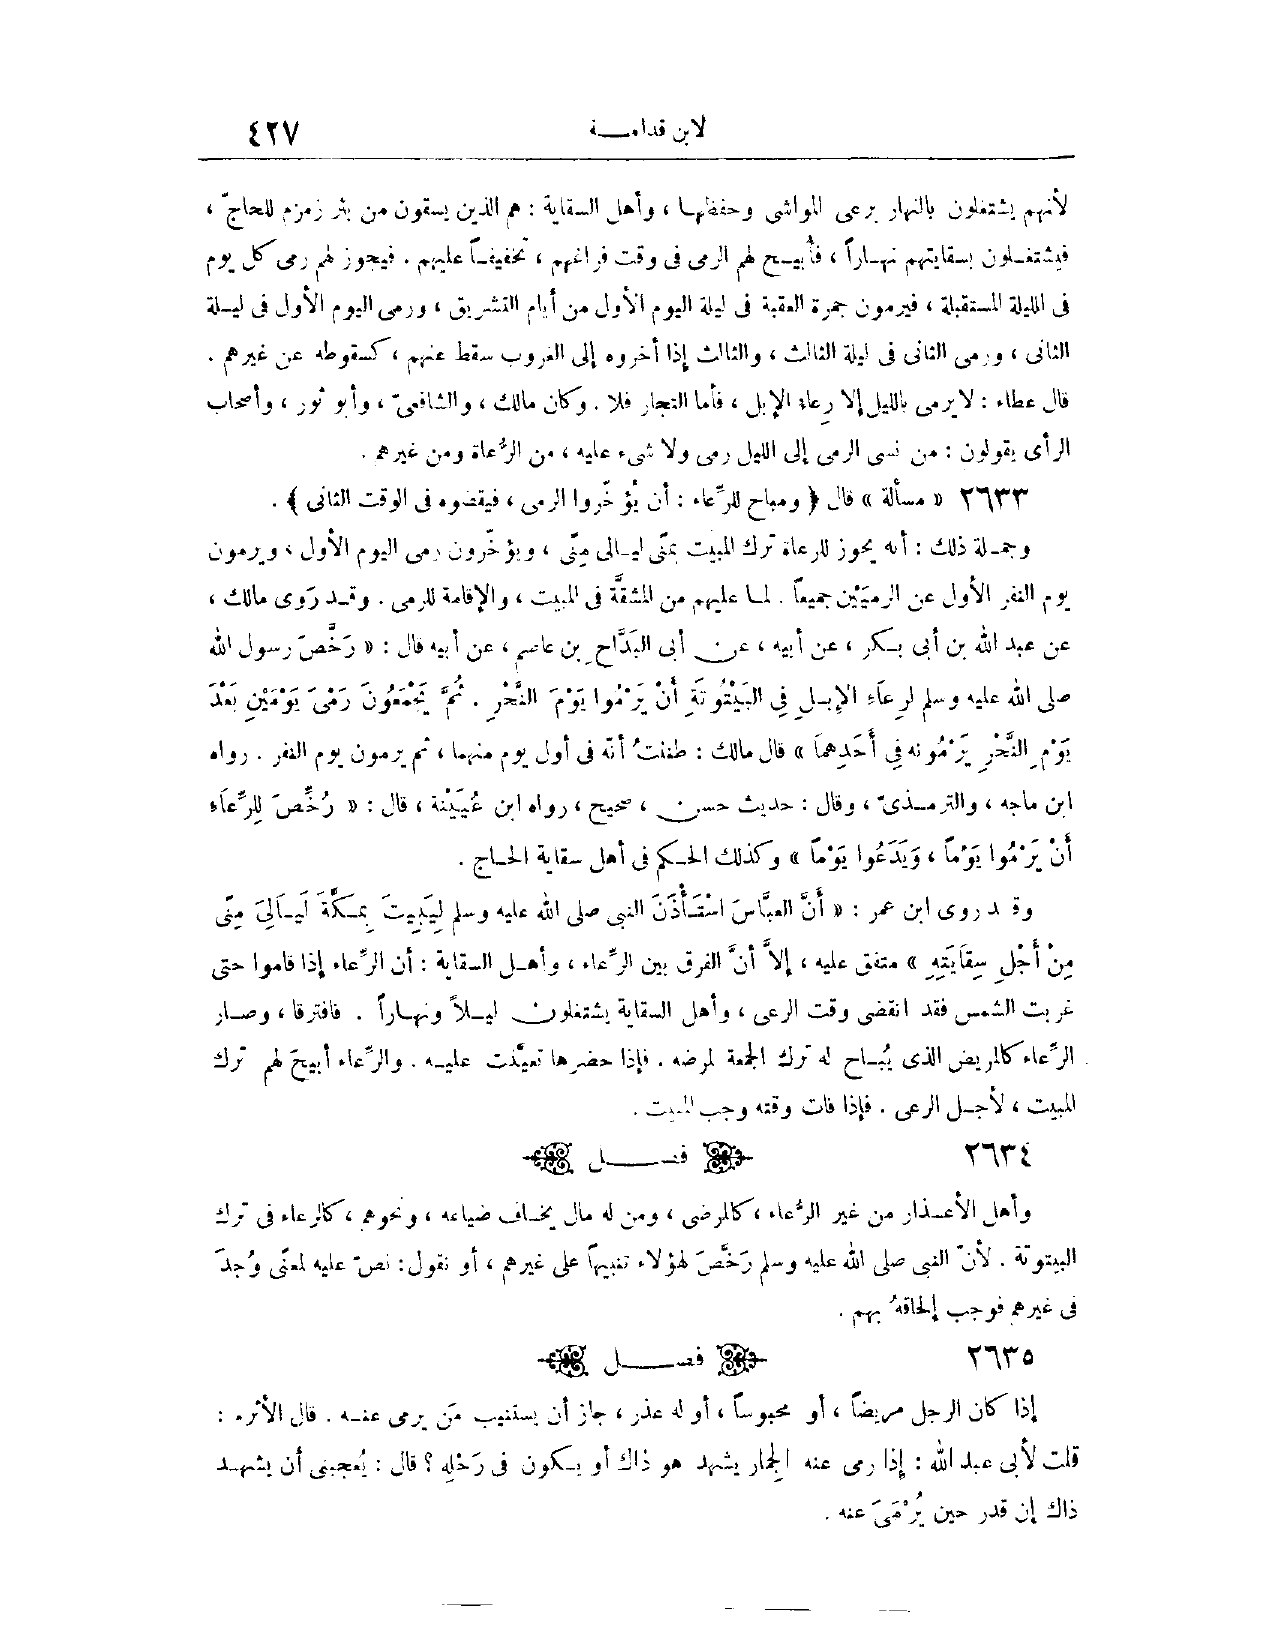 لابن قدامـــة ٤٢٧
لأنهم يشتغلون بالنهار برعى المواشى وحفظهـا ، وأهل السقاية : هم الذين يسقون من بئر زمزم للحاجّ ،
فيشتغـلون بسقايتهم نهـاراً ، فأبيـح لهم الرمى فى وقت فراغهم ، تخفيفـاً عليهم . فيجوز لهم رمى كل يوم
فى الليلة المستقبلة ، فيرمون جمرة العقبة فى ليلة اليوم الأول من أيام التشريق ، ورمى اليوم الأول فى ليـلة
الثانى ، ورمى الثانى فى ليلة الثالث ، والثالث إذا أخروه إلى الغروب سقط عنهم ، كسقوطه عن غيرهم .
قال عطاء : لا يرمى بالليل إلا رِعاء الإبل ، فأما التجار فلا . وكان مالك ، والشافعىّ ، وأبو ثور ، وأصحاب
الرأى يقولون : من نسى الرمى إلى الليل رمى ولا شىء عليه ، من الرُّعاة ومن غيرهم .
٢٦٣٣ « مسألة » قال ﴿ ومباح للرِّعاء : أن يُؤخِّروا الرمى ، فيقضوه فى الوقت الثانى ﴾ .
وجمـلة ذلك : أنه يجوز للرعاة ترك المبيت بمنًى ليـالى مِنًى ، ويؤخّرون رمى اليوم الأول ، ويرمون
يوم النفر الأول عن الرميَيْن جميعاً . لمـا عليهم من المشقَّة فى المبيت ، والإقامة للرمى . وقـد رَوى مالك ،
عن عبد الله بن أبى بـكر ، عن أبيه ، عن أبى البَدَّاح بن عاصم ، عن أبيه قال : « رَخَّصَ رسول الله
صلى الله عليه وسلم لرِعَاءِ الإبـلِ فِي البَيْتُوتَةِ أَنْ يَرْمُوا يَوْمَ النَّحْرِ . ثُمَّ يَجْمَعُونَ رَمْىَ يَوْمَيْنِ بَعْدَ
يَوْمِ النَّحْرِ يَرْمُونه فِي أَحَدِهمَا » قال مالك : ظننتُ أنّه فى أول يوم منهما ، ثم يرمون يوم النفر . رواه
ابن ماجه ، والترمـذىّ ، وقال : حديث حسن ، صحيح ، رواه ابن عُيَيْنة ، قال : « رُخِّصَ لِلرِّعَاءِ
أَنْ يَرْمُوا يَوْماً ، وَيَدَعُوا يَوْماً » وكذلك الحـكم فى أهل سقاية الحـاج .
وقـد روى ابن عمر : « أَنَّ العبَّاسَ اسْتَـأْذَنَ النبى صلى الله عليه وسلم لِيَبِيتَ بِمـكَّةَ لَيَـالِىَ مِنًى
مِنْ أَجْلِ سِقَايَتِهِ » متفق عليه ، إلاَّ أنَّ الفرق بين الرِّعاء ، وأهـل السقاية : أن الرِّعاء إذا قاموا حتى
غربت الشمس فقد انقضى وقت الرعى ، وأهل السقاية يشتغلون ليـلاً ونهـاراً . فافترقا ، وصـار
الرِّعاء كالمريض الذى يُبـاح له ترك الجمعة لمرضه . فإذا حضرها تعيَّنت عليـه . والرِّعاء أبيحَ لهم ترك
المبيت ، لأجـل الرعى . فإذا فات وقته وجب المبيت .
٢٦٣٤ فصـــل
وأهل الأعـذار من غير الرُّعاء ، كالمرضى ، ومن له مال يخـاف ضياعه ، ونحوهم ، كالرعاء فى ترك
البيتوتة . لأنّ النبى صلى الله عليه وسلم رَخَّصَ لهؤلاء تنبيهاً على غيرهم ، أو نقول : نصّ عليه لمعنًى وُجدَ
فى غيرهم فوجب إلحاقهُ بهم .
٢٦٣٥ فصـــل
إذا كان الرجل مريضاً ، أو محبوساً ، أو له عذر ، جاز أن يستنيب مَن يرمى عنـه . قال الأثرم :
قلت لأبى عبد الله : إذا رمى عنه الجِمار يشهد هو ذاك أو يـكون فى رَحْلِه ؟ قال : يُعجبنى أن يشهـد
ذاك إن قدر حين يُرْمَىَ عنه .